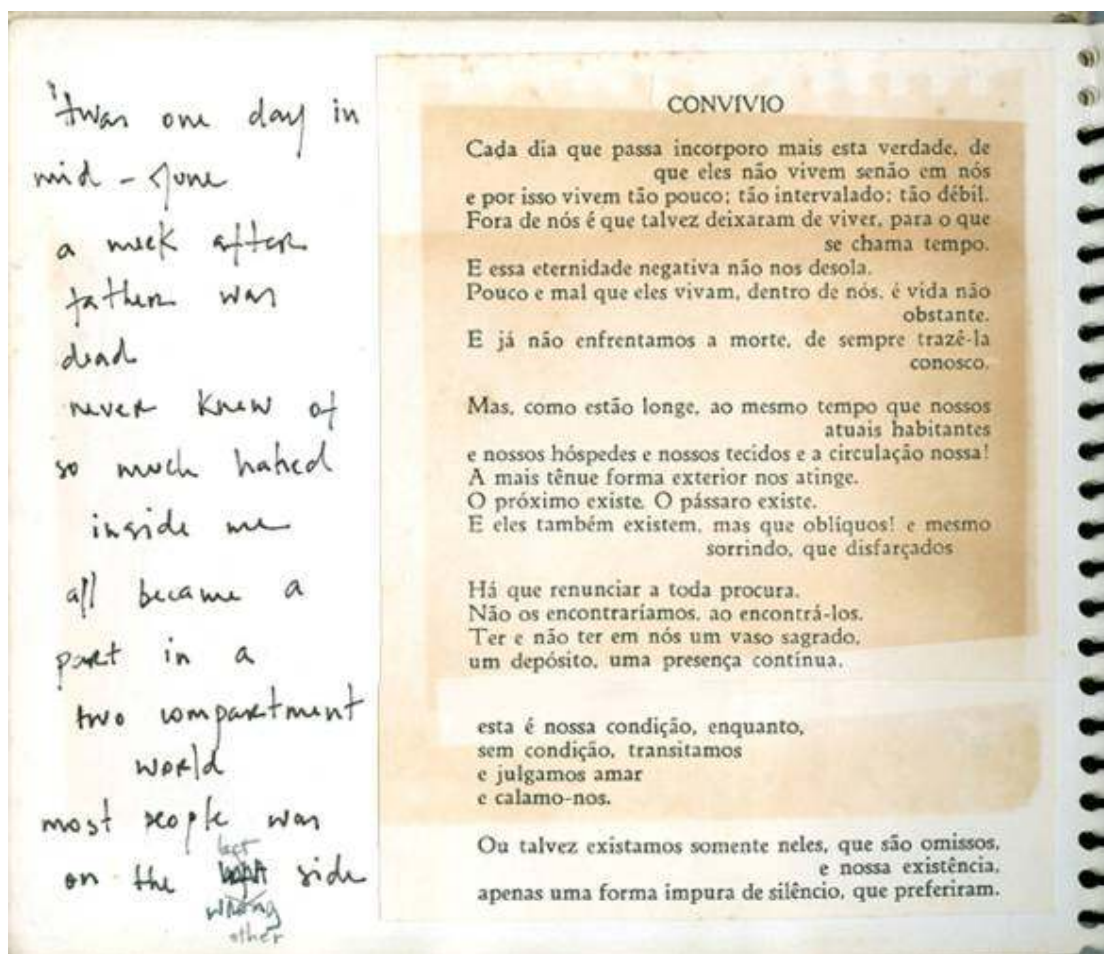 'twas one day in
mid - June
a week after
father was
dead
never knew of
so much hatred
inside me
all became a
part in a
two compartment
world
most people was
on the side
wrong
other
CONVÍVIO
Cada dia que passa incorporo mais esta verdade, de
que eles não vivem senão em nós
e por isso vivem tão pouco; tão intervalado; tão débil.
Fora de nós é que talvez deixaram de viver, para o que
se chama tempo.
E essa eternidade negativa não nos desola.
Pouco e mal que eles vivam, dentro de nós, é vida não
obstante.
E já não enfrentamos a morte, de sempre trazê-la
conosco.
Mas, como estão longe, ao mesmo tempo que nossos
atuais habitantes
e nossos hóspedes e nossos tecidos e a circulação nossa!
A mais tênue forma exterior nos atinge.
O próximo existe. O pássaro existe.
E eles também existem, mas que oblíquos! e mesmo
sorrindo, que disfarçados
Há que renunciar a toda procura.
Não os encontraríamos, ao encontrá-los.
Ter e não ter em nós um vaso sagrado,
um depósito, uma presença contínua,
esta é nossa condição, enquanto,
sem condição, transitamos
e julgamos amar
e calamo-nos.
Ou talvez existamos somente neles, que são omissos,
e nossa existência,
apenas uma forma impura de silêncio, que preferiram.